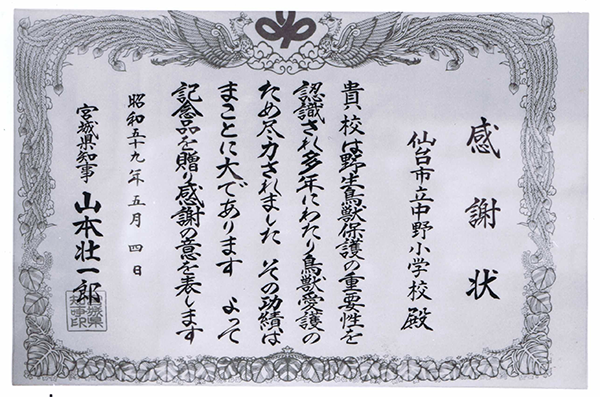 感謝状
仙台市立中野小学校殿
貴校は野生鳥獣保護の重要性を
認識され多年にわたり鳥獣愛護の
ため尽力されました その功績は
まことに大であります よって
記念品を贈り感謝の意を表します
昭和五十九年五月四日
宮城県知事 山本壮一郎
宮城県知事印